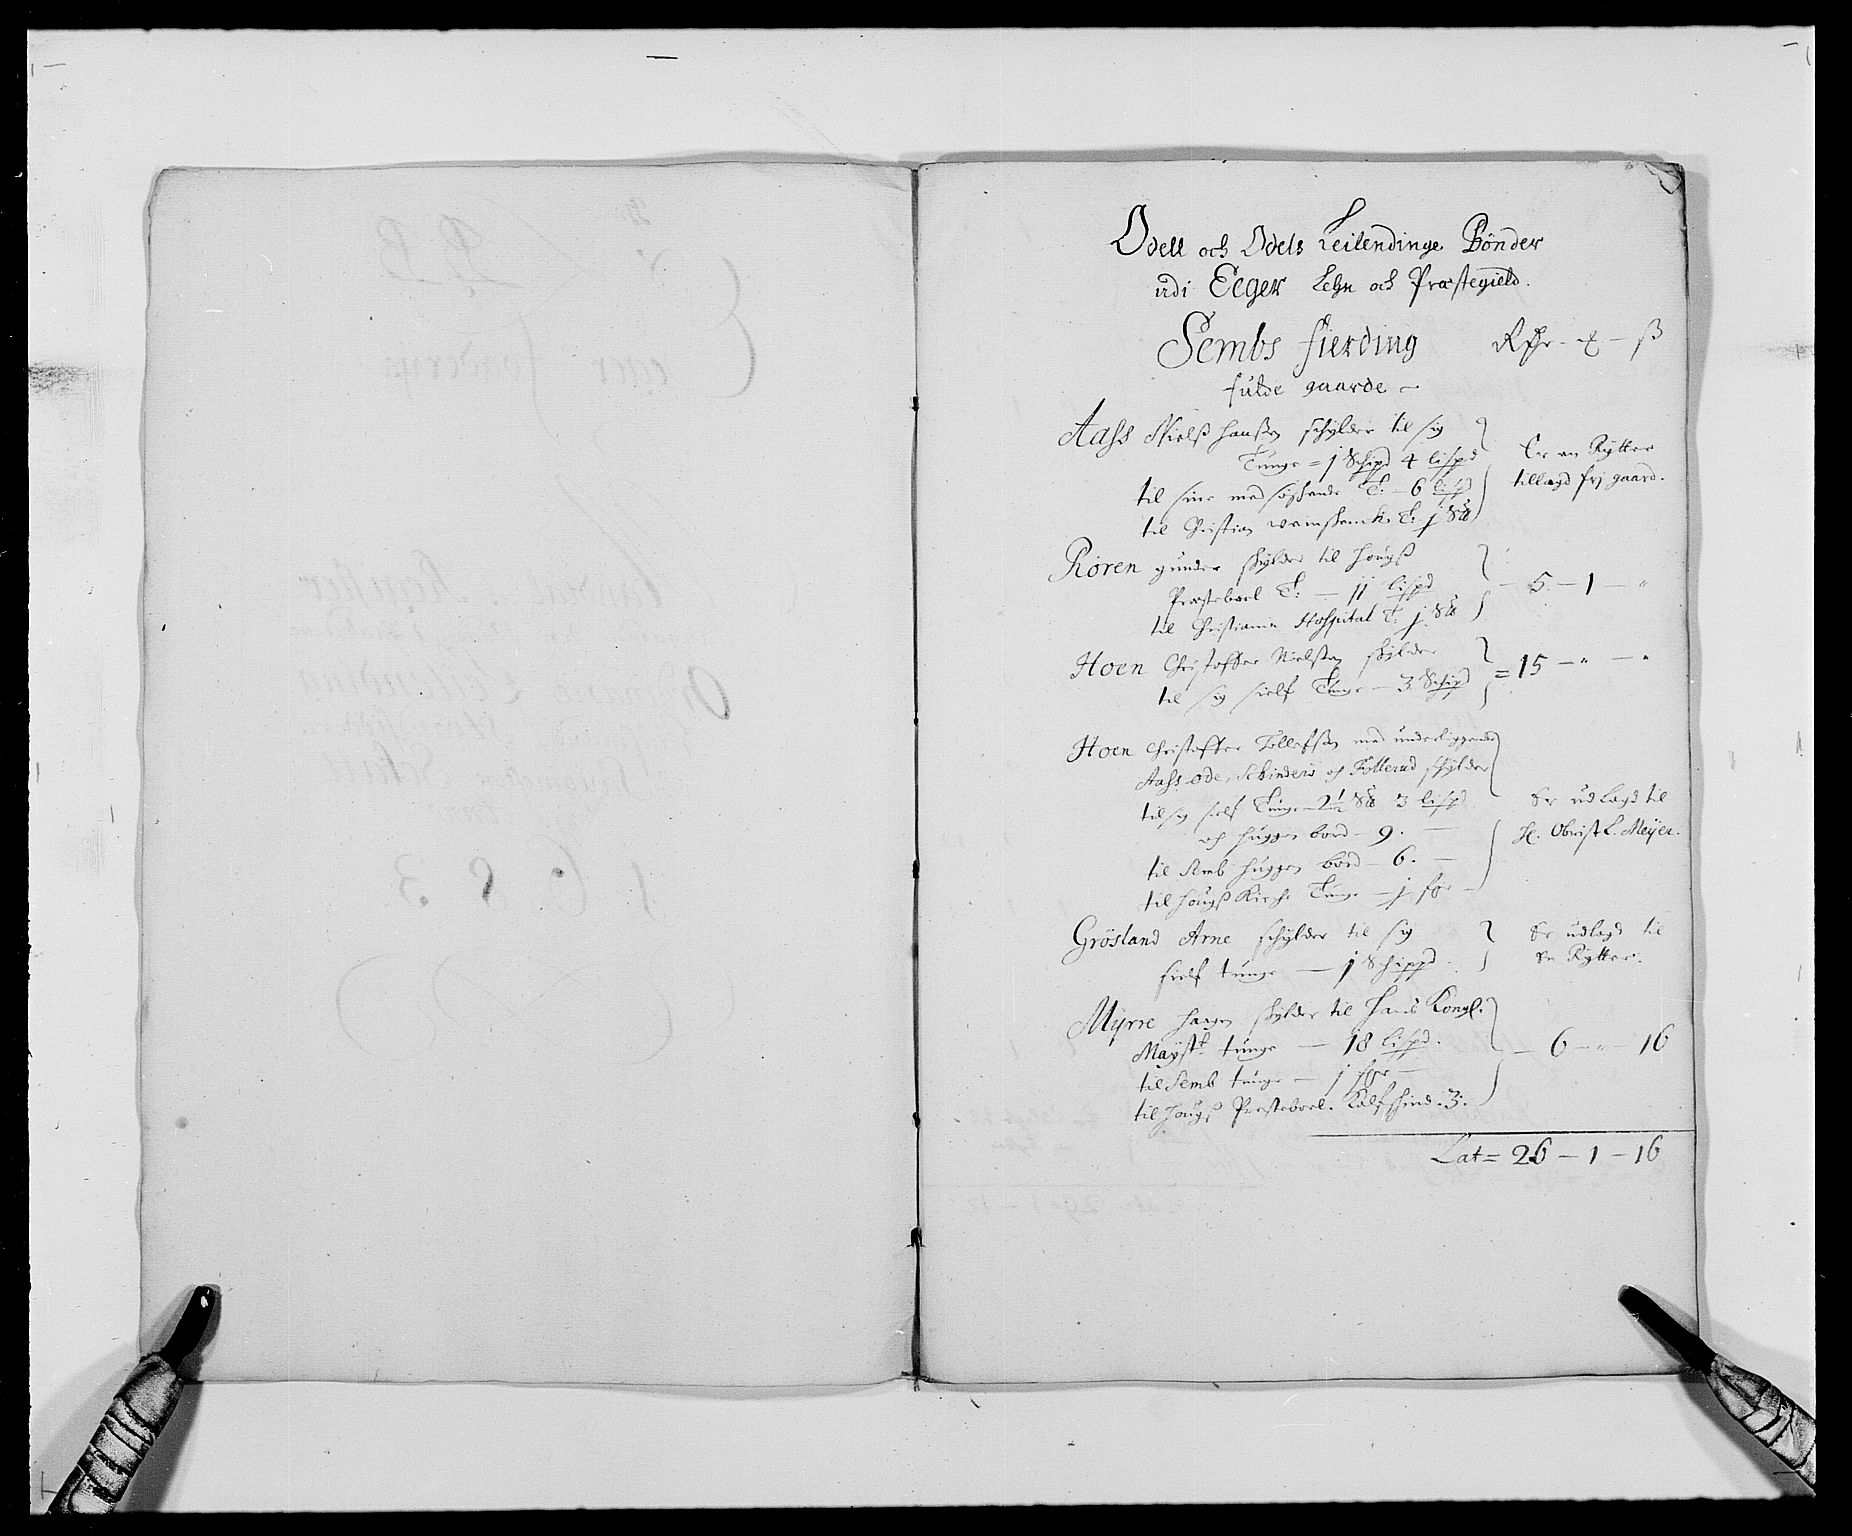 Odell och Odels Leilendinge Bönder
udi Eeger Lehn och Præstegield.
Sembs fierding Rdr - ort - ß
fulde gaarde -
Aass Nielß Hanßen schylder til sig
Tunge = j Schipd 4 lispd
til sine med söskende T: - 6 lispd
til Christian T: j Sk℔
Er en Rytter
tillagd fri gaard.
Roren gunder schylder til Hougs
Præsteboel T: - 11 lispd
til Christiania Hospital T: j Sk℔ - 5 - 1 - "
Hoen Christoffer Nielsen schylder
til sig sielf Tunge - 3 Schipd = 15 - " - "
Hoen Christoffer Tollefsen med underliggende
Aass öde, og schylder
til sig sielf Tunge - 2½ Sk℔ 3 lispd
och huggen bord - 9. -
til Semb huggen bord - 6. -
til Hougs Kirche Tunge - j
Er udlagd til
H. Obrist L. Meÿer.
Grösland Arne schylder til sig
sielf tunge - j Schippd.
Er udlagd til
En Rytter.
Myrre Haagen schylder til Hans Kongl.
Maystt. tunge - 18 lispd. - 6 - " - 16
til Semb tunge - j
til Hougs Præsteboel. Kalfskind. 3.
Lat = 26 - 1 - 16